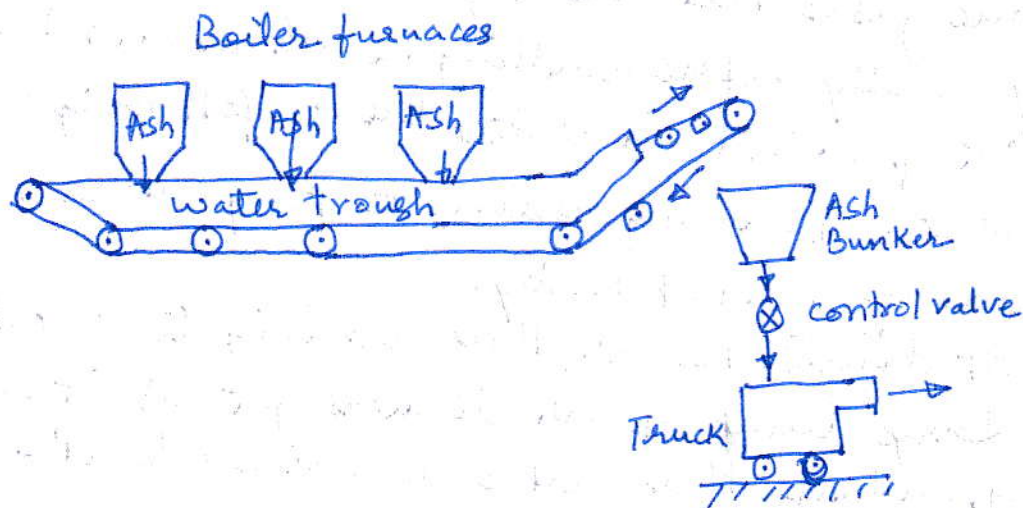 Boiler furnaces
Ash
Ash
Ash
water trough
Ash
Bunker
control valve
Truck